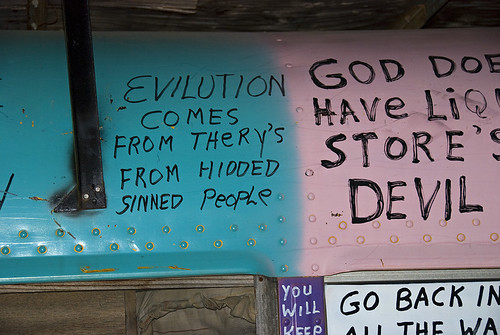 EVILUTION
COMES
FROM THERY'S
FROM HIDDED
SINNED PEOPLE
GOD DOE
HAVE LiQU
STORE'S
DEVIL
YOU
WILL
KEEP
GO BACK IN
ALL THE WA